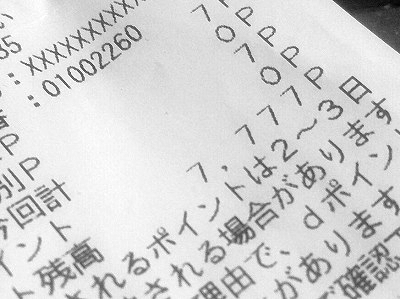 い
35
：XXXXXXXXX
：01002260
P 7P
別P 0P
今回計 7P
イント 0P
ト残高 7,777P
されるポイントは2～3日
される場合があります
理由で、dポイン
があります
確認